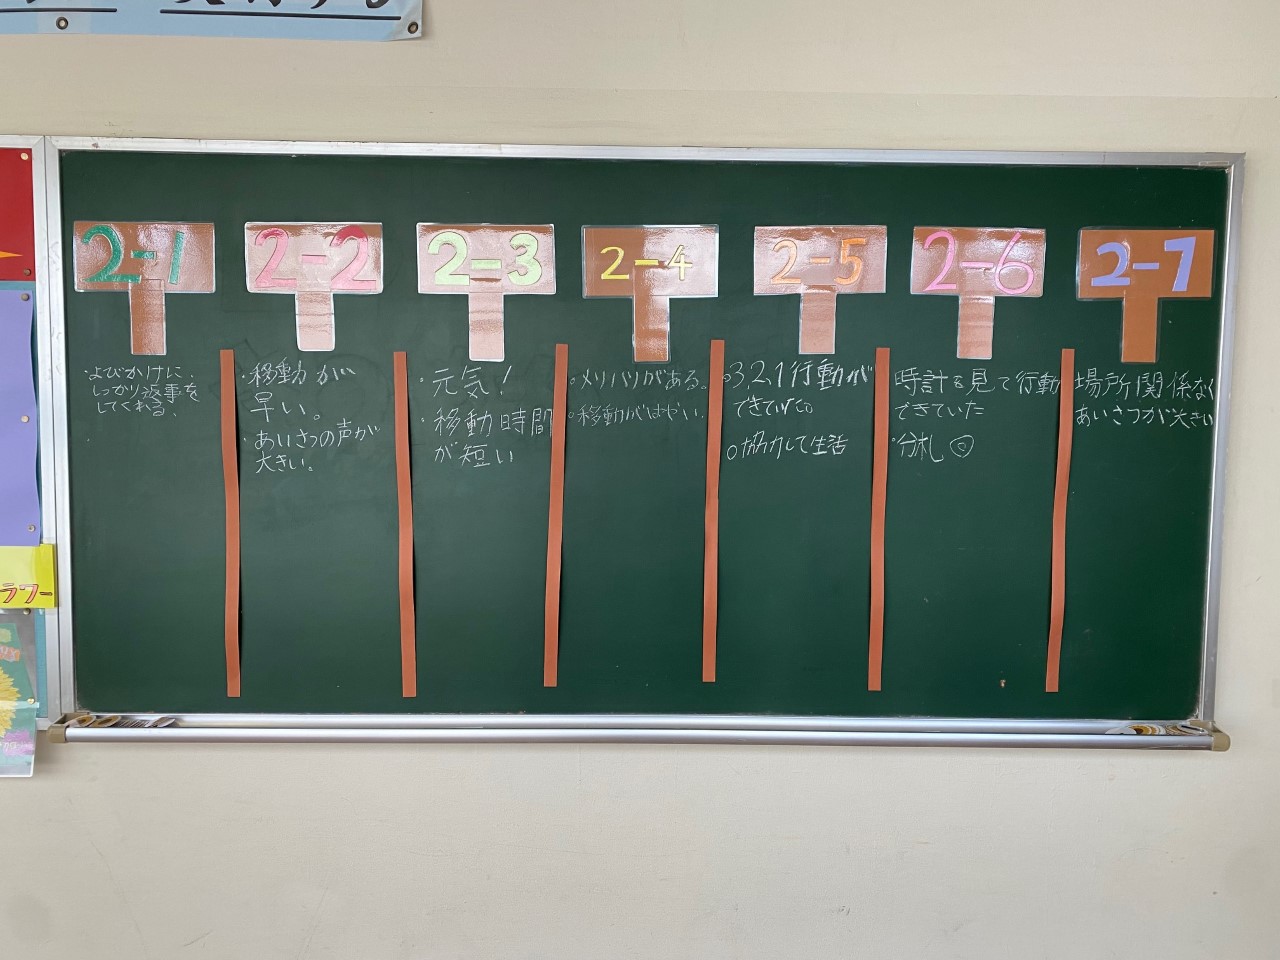 する
ラワー
2-1
・よびかけに、
しっかり返事を
してくれる。
2-2
・移動が
早い。
・あいさつの声が
大きい。
2-3
・元気!
・移動時間
が短い
2-4
○メリハリがある。
○移動がはやい。
2-5
○3.2.1行動が
できていた。
○協力して生活
2-6
・時計を見て行動
できていた
・分札◎
2-7
場所関係なく
あいさつが大きい